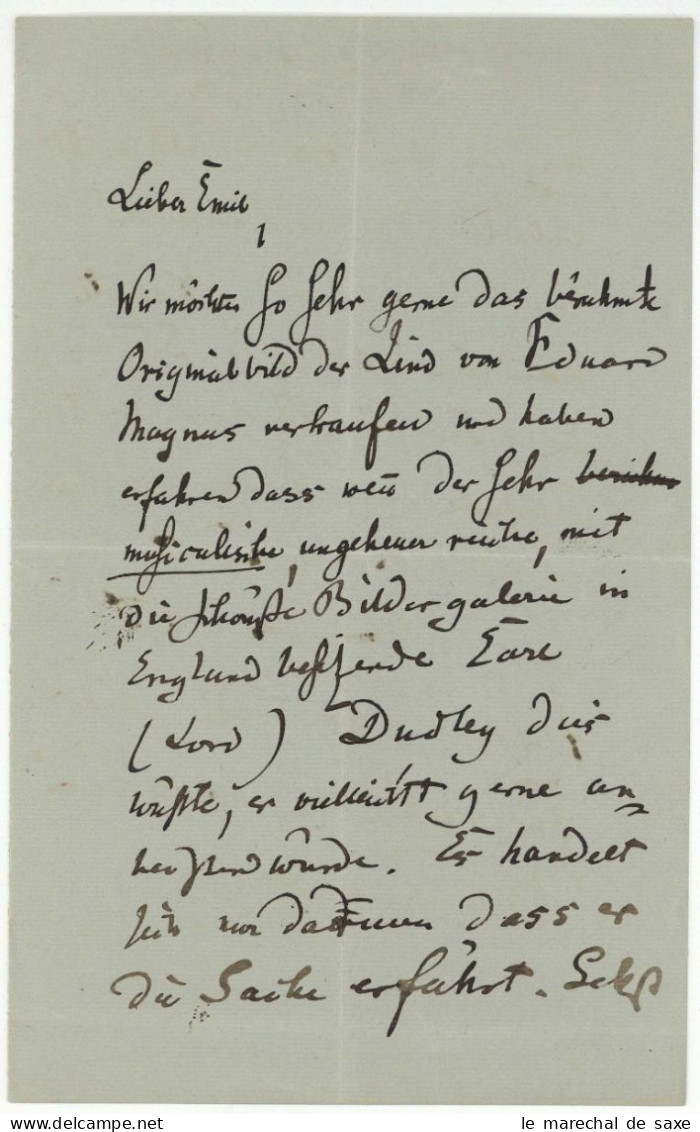 Lieber Emil,
Wir möchten so sehr gerne das berühmte
Originalbild der Lind von Eduard
Magnus verkaufen und haben
erfahren dass wenn der sehr berühm
musicalische, ungeheuer reiche, mit
die schönste Bildergalerie in
England besitzende Earl
(Lord) Dudley dies
wüßte, er vielleicht gerne an-
würde. Es handelt
sich nur darum dass er
die Sache erfährt. Selbst
le marechal de saxe